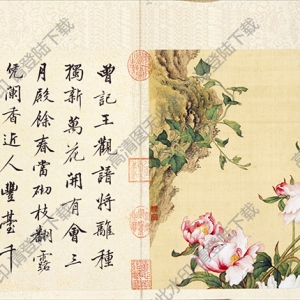 曹記王觀譜將離種
獨新萬花開有會三
月殿餘春當砌枝翻露
凭闌香近人豐臺千